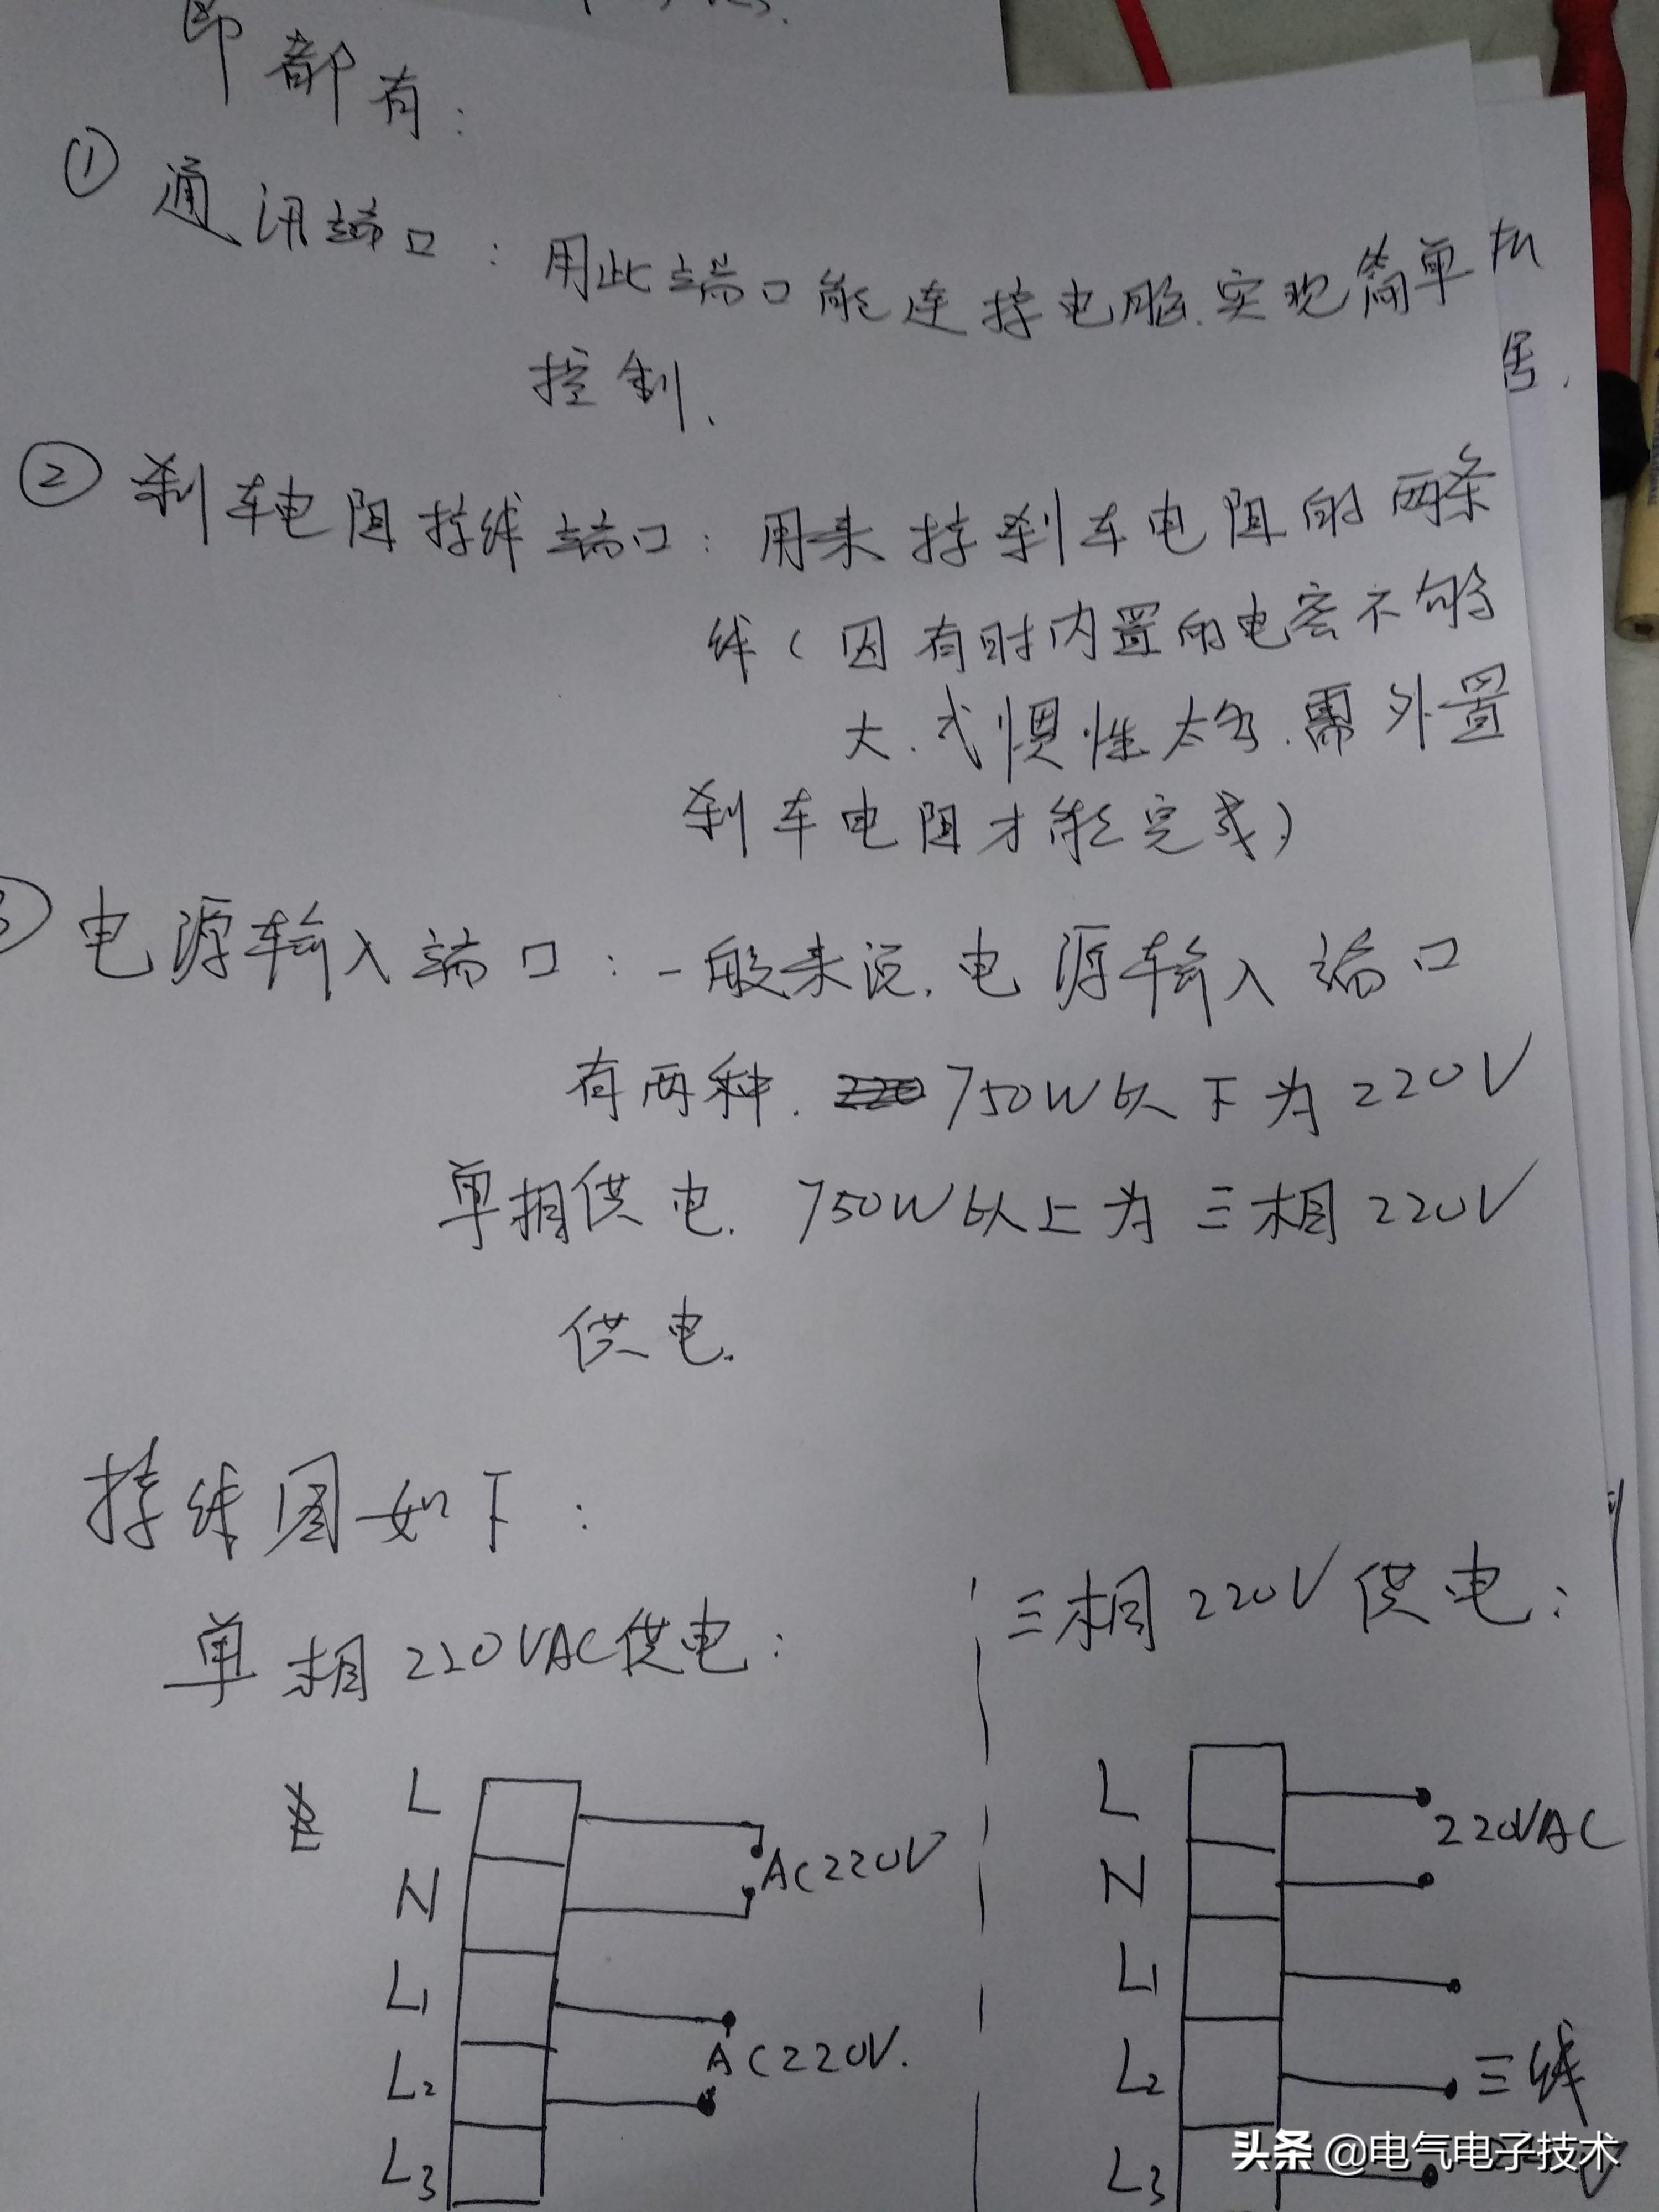 即都有:
① 通讯端口: 用此端口能连接电脑.实现简单
控制.
② 刹车电阻接线端口: 用来接刹车电阻的两条
线(因有时内置的电容不够
大.或惯性太大.需外置
刹车电阻才能完成)
电源输入端口: 一般来说.电源输入端口
有两种. 750W以下为220V
单相供电. 750W以上为三相220V
供电.
接线图如下:
单相220VAC供电:
三相220V供电:
L
N
L1
L2
L3
AC220V
AC220V.
L
N
L1
L2
L3
220VAC
三线
头条 @电气电子技术